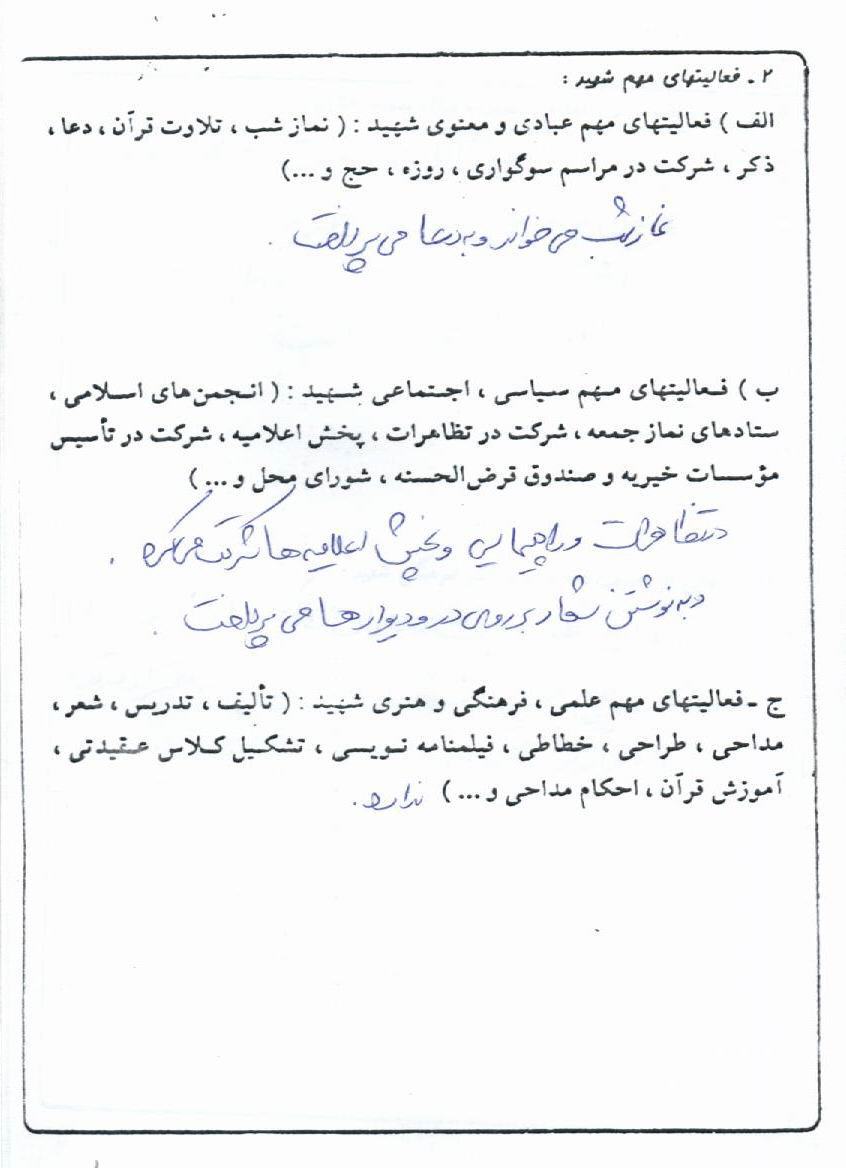 ۲ - فعالیتهای مهم شهید :
الف ) فعالیتهای مهم عبادی و معنوی شهید : ( نماز شب ، تلاوت قرآن ، دعا ،
ذکر ، شرکت در مراسم سوگواری ، روزه ، حج و ...)
نماز شب می خواند و به دعا می پرداخت .
ب ) فعالیتهای مهم سیاسی ، اجتماعی شهید : ( انجمن‌های اسلامی ،
ستادهای نماز جمعه ، شرکت در تظاهرات ، پخش اعلامیه ، شرکت در تأسیس
مؤسسات خیریه و صندوق قرض‌الحسنه ، شورای محل و ... )
در تظاهرات و راهپیمایی و پخش اعلامیه ها شرکت می کرد .
و به نوشتن شعار بر روی در و دیوارها می پرداخت .
ج - فعالیتهای مهم علمی ، فرهنگی و هنری شهید : ( تألیف ، تدریس ، شعر ،
مداحی ، طراحی ، خطاطی ، فیلمنامه نویسی ، تشکیل کلاس عقیدتی ،
آموزش قرآن ، احکام مداحی و ... ) ندارد .